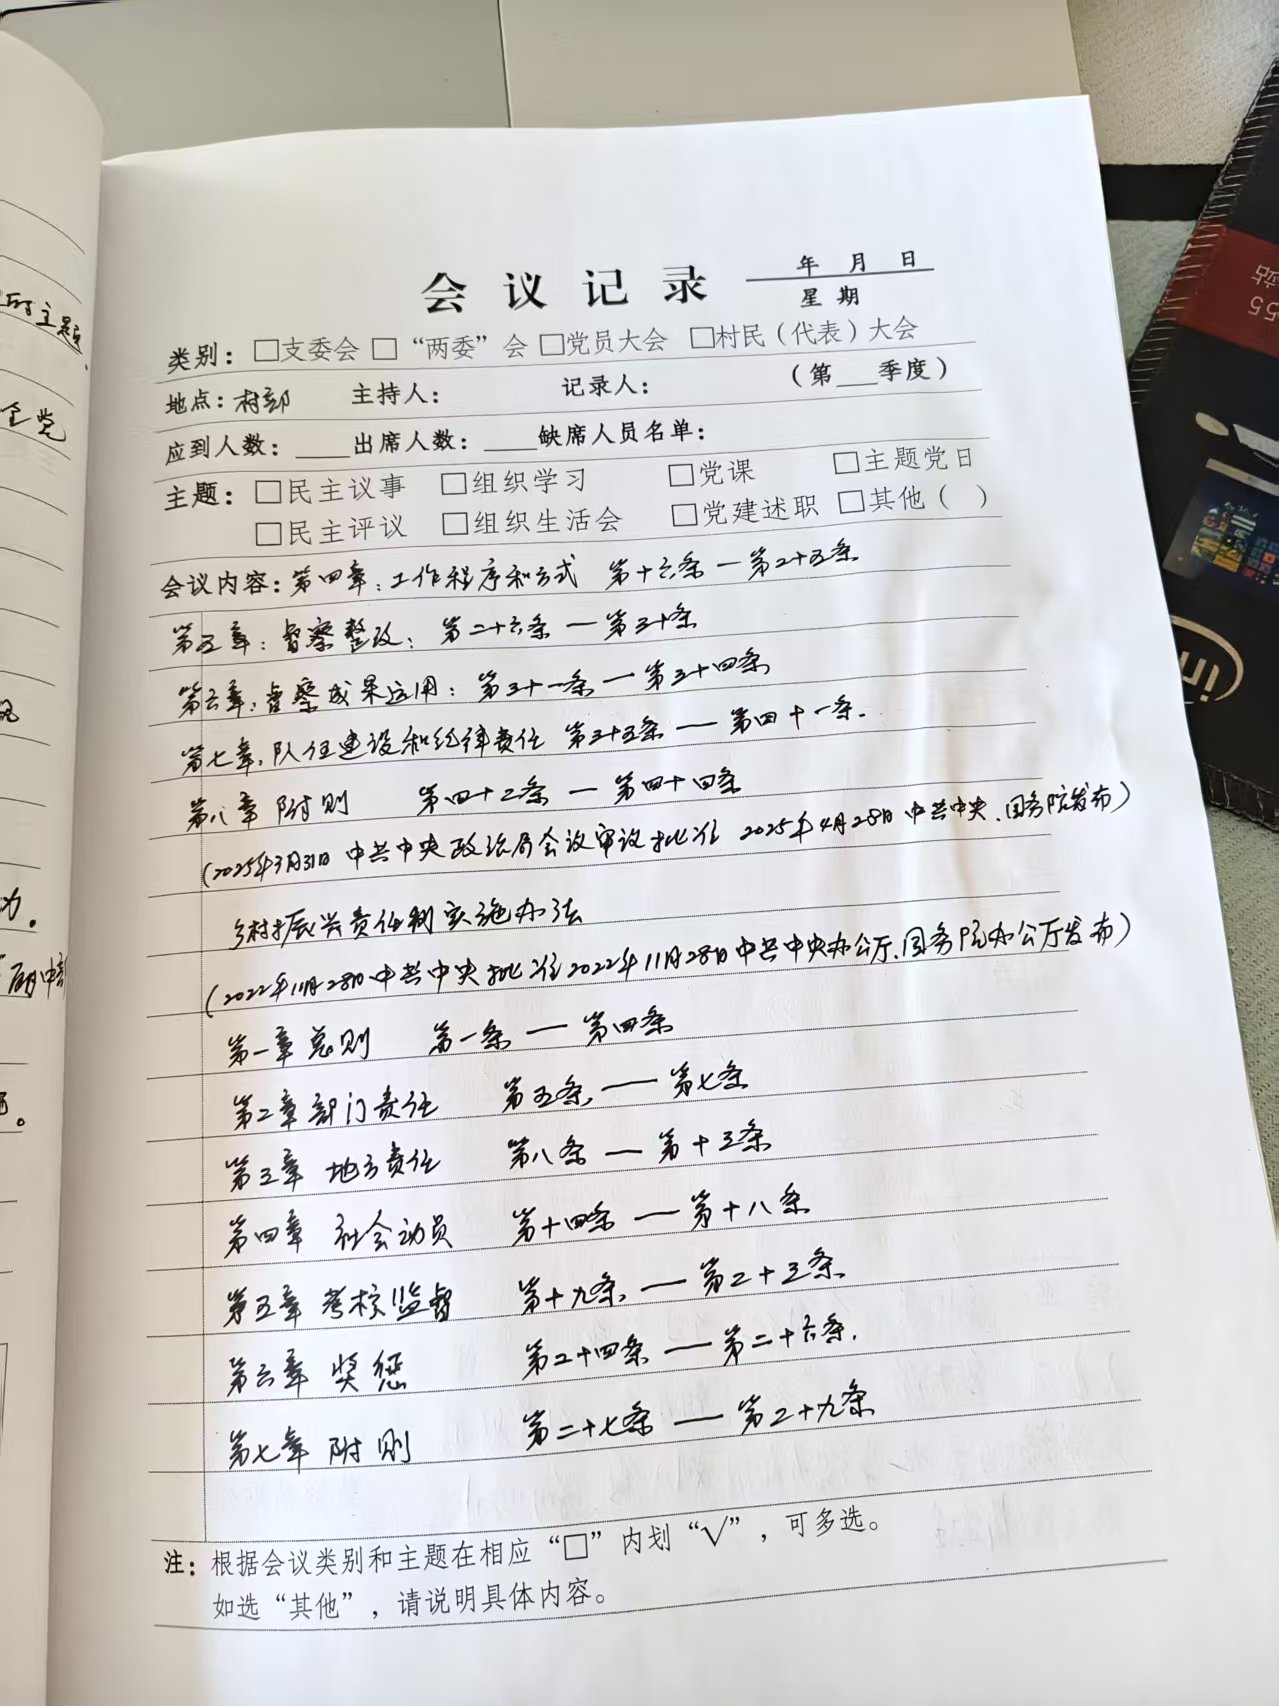 会议记录 年 月 日
星期
类别：□支委会 □“两委”会 □党员大会 □村民（代表）大会
地点：村部 主持人： 记录人： （第___季度）
应到人数：____出席人数：____缺席人员名单：
主题：□民主议事 □组织学习 □党课 □主题党日
□民主评议 □组织生活会 □党建述职 □其他（ ）
会议内容：第四章：工作程序和方式 第十六条—第二十五条
第五章：督察整改：第二十六条—第三十条
第六章：督察成果运用：第三十一条—第三十四条
第七章，队伍建设和纪律责任 第三十五条——第四十一条.
第八章 附则 第四十二条—第四十四条
（2025年3月31日 中共中央政治局会议审议批准 2025年4月28日 中共中央、国务院发布）
乡村振兴责任制实施办法
（2022年11月28日中共中央批准 2022年11月28日中共中央办公厅、国务院办公厅发布）
第一章 总则 第一条——第四条
第二章 部门责任 第五条——第七条
第三章 地方责任 第八条—第十三条
第四章 社会动员 第十四条——第十八条
第五章 考核监督 第十九条——第二十三条
第六章 奖惩 第二十四条——第二十六条.
第七章 附则 第二十七条——第二十九条
注：根据会议类别和主题在相应“□”内划“√”，可多选。
如选“其他”，请说明具体内容。
的主题
全党
力。
。
in
55
站